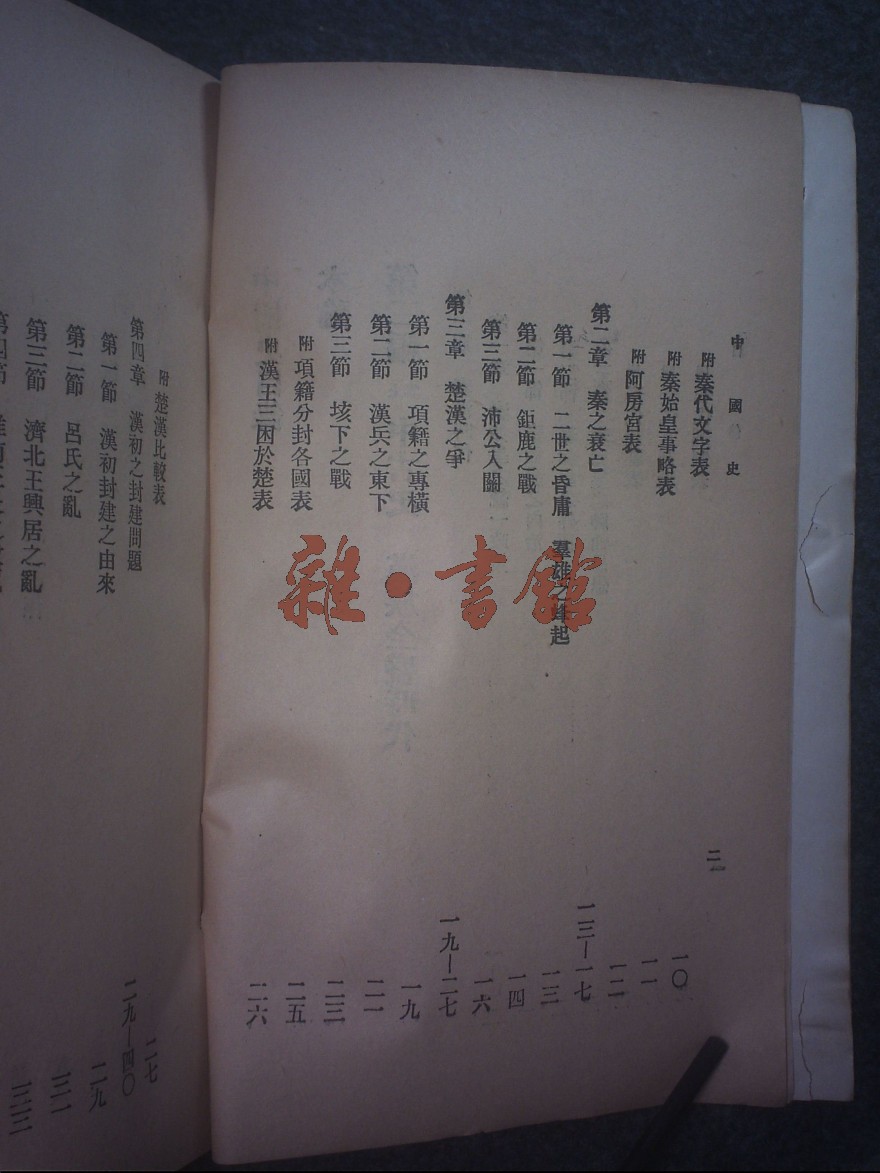 中國史
二
附 秦代文字表 一〇
附 秦始皇事略表 一一
附 阿房宮表 一二
第二章 秦之衰亡 一三—一七
第一節 二世之昏庸 羣雄之蜂起 一三
第二節 鉅鹿之戰 一四
第三節 沛公入關 一六
第三章 楚漢之爭 一九—二七
第一節 項籍之專橫 一九
第二節 漢兵之東下 二一
第三節 垓下之戰 二三
附 項籍分封各國表 二五
附 漢王三困於楚表 二六
附 楚漢比較表 二七
第四章 漢初之封建問題 二九—四〇
第一節 漢初封建之由來 二九
第二節 呂氏之亂 三一
第三節 濟北王興居之亂 三三
雜·書館